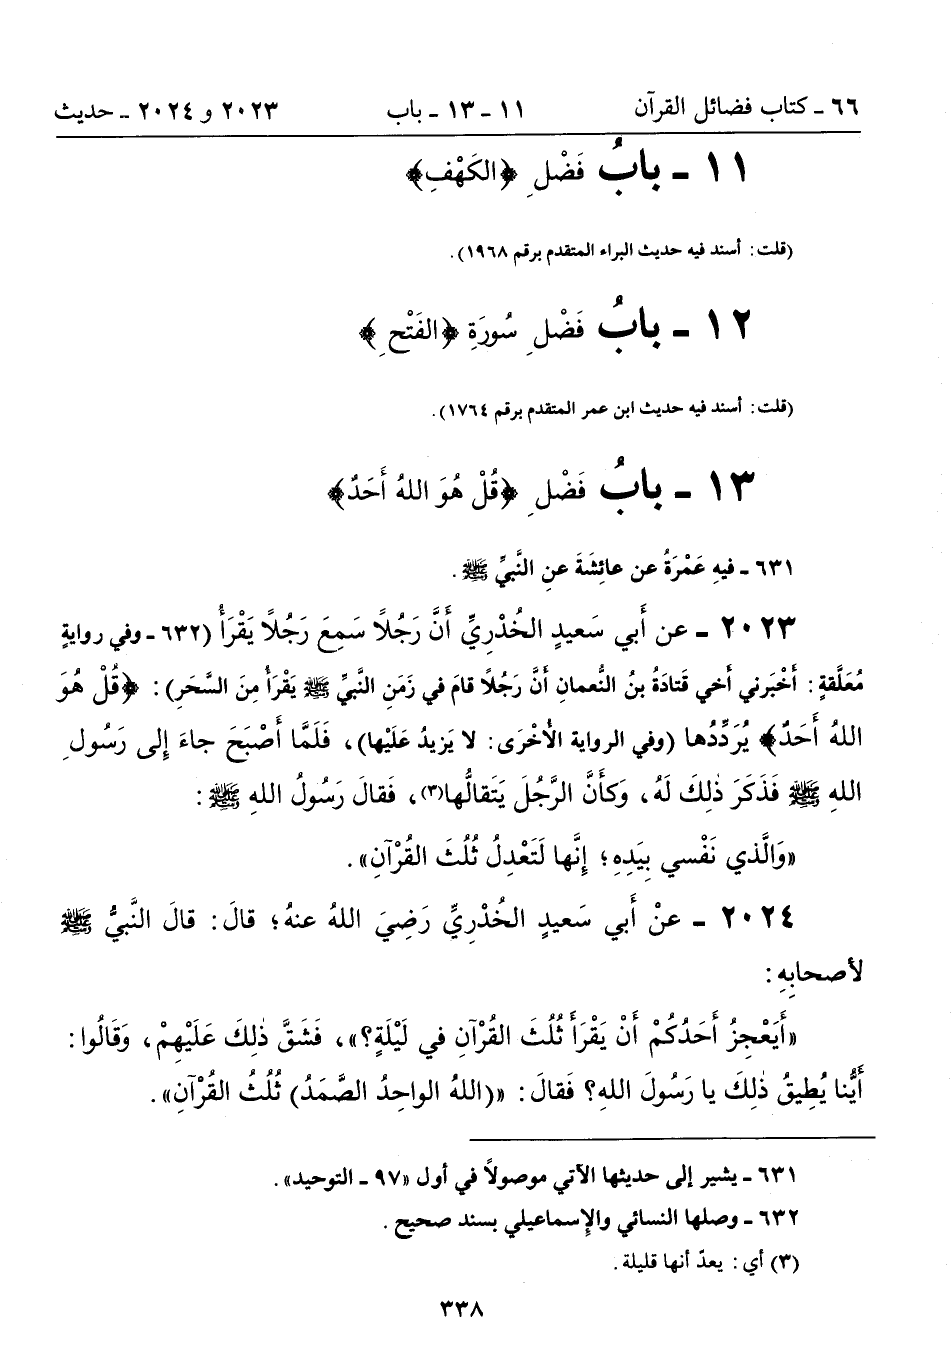 ٦٦ ـ كتاب فضائل القرآن ١١ ـ ١٣ ـ باب ٢٠٢٣ و ٢٠٢٤ ـ حديث
١١ ـ بابُ فَضْلِ ﴿الكَهْفِ﴾
(قلت: أسند فيه حديث البراء المتقدم برقم ١٩٦٨).
١٢ ـ بابُ فَضْلِ سُورَةِ ﴿الفَتْحِ﴾
(قلت: أسند فيه حديث ابن عمر المتقدم برقم ١٧٦٤).
١٣ ـ بابُ فَضْلِ ﴿قُلْ هُوَ اللهُ أَحَدٌ﴾
٦٣١ ـ فيهِ عَمْرَةُ عن عائِشَةَ عنِ النَّبيِّ ﷺ.
٢٠٢٣ ـ عن أَبي سَعيدٍ الخُدْرِيِّ أَنَّ رَجُلاً سَمِعَ رَجُلاً يَقْرَأُ (٦٣٢ ـ وفي روايةٍ
مُعَلَّقةٍ: أَخْبَرني أَخي قَتادَةُ بنُ النُّعمانِ أَنَّ رَجُلاً قامَ في زَمَنِ النبيِّ ﷺ يَقْرَأُ مِنَ السَّحَرِ): ﴿قُلْ هُوَ
اللهُ أَحَدٌ﴾ يُرَدِّدُها (وفي الرواية الأُخْرَى: لا يَزيدُ عَلَيْها)، فَلَمَّا أَصْبَحَ جاءَ إِلى رَسُولِ
اللهِ ﷺ فَذَكَرَ ذٰلِكَ لَهُ، وَكأَنَّ الرَّجُلَ يَتَقالُّها(٣)، فَقالَ رَسُولُ اللهِ ﷺ:
«وَالَّذي نَفْسي بِيَدِهِ؛ إِنَّها لَتَعْدِلُ ثُلُثَ القُرْآنِ».
٢٠٢٤ ـ عنْ أَبي سَعيدٍ الخُدْرِيِّ رَضِيَ اللهُ عنهُ؛ قالَ: قالَ النَّبيُّ ﷺ
لأصحابِهِ:
«أَيَعْجِزُ أَحَدُكُمْ أَنْ يَقْرَأَ ثُلُثَ القُرْآنِ في لَيْلَةٍ؟»، فَشَقَّ ذٰلِكَ عَلَيْهِمْ، وَقَالُوا:
أَيُّنا يُطِيقُ ذٰلِكَ يا رَسُولَ اللهِ؟ فَقالَ: «(اللهُ الواحِدُ الصَّمَدُ) ثُلُثُ القُرْآنِ».
٦٣١ ـ يشير إلى حديثها الآتي موصولاً في أول «٩٧ ـ التوحيد».
٦٣٢ ـ وصلها النسائي والإسماعيلي بسند صحيح.
(٣) أي: يعدّ أنها قليلة.
٣٣٨